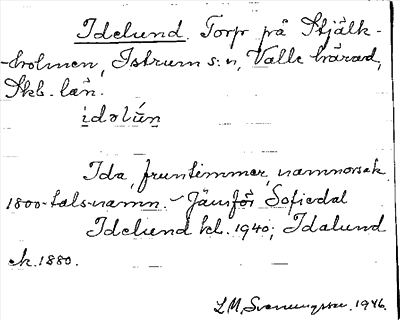 Idelund. Torp på Stjälk-
-holmen, Istrum s:n, Valle härad,
Skb. län.
idəlún
Ida, fruntimmer, namnorsak
1800-talsnamn. - Jämför Sofiedal
Idelund hl. 1940; Idalund
ek. 1880.
L.M. Svenungsson. 1946.